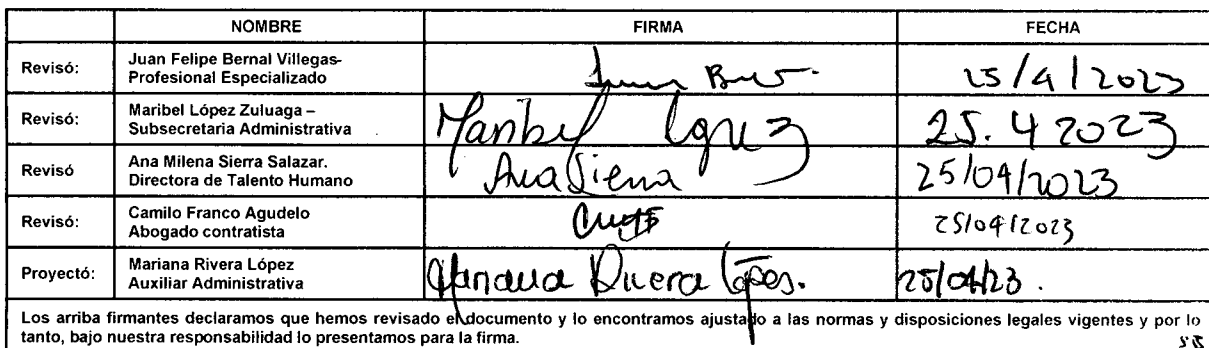 NOMBRE FIRMA FECHA
Revisó: Juan Felipe Bernal Villegas-
Profesional Especializado
25/4/2023
Revisó: Maribel López Zuluaga –
Subsecretaria Administrativa
Maribel López 25.4 2023
Revisó Ana Milena Sierra Salazar.
Directora de Talento Humano
Ana Sierra 25/04/2023
Revisó: Camilo Franco Agudelo
Abogado contratista
25/04/2023
Proyectó: Mariana Rivera López
Auxiliar Administrativa
Mariana Rivera López. 25/04/23.
Los arriba firmantes declaramos que hemos revisado el documento y lo encontramos ajustado a las normas y disposiciones legales vigentes y por lo
tanto, bajo nuestra responsabilidad lo presentamos para la firma.